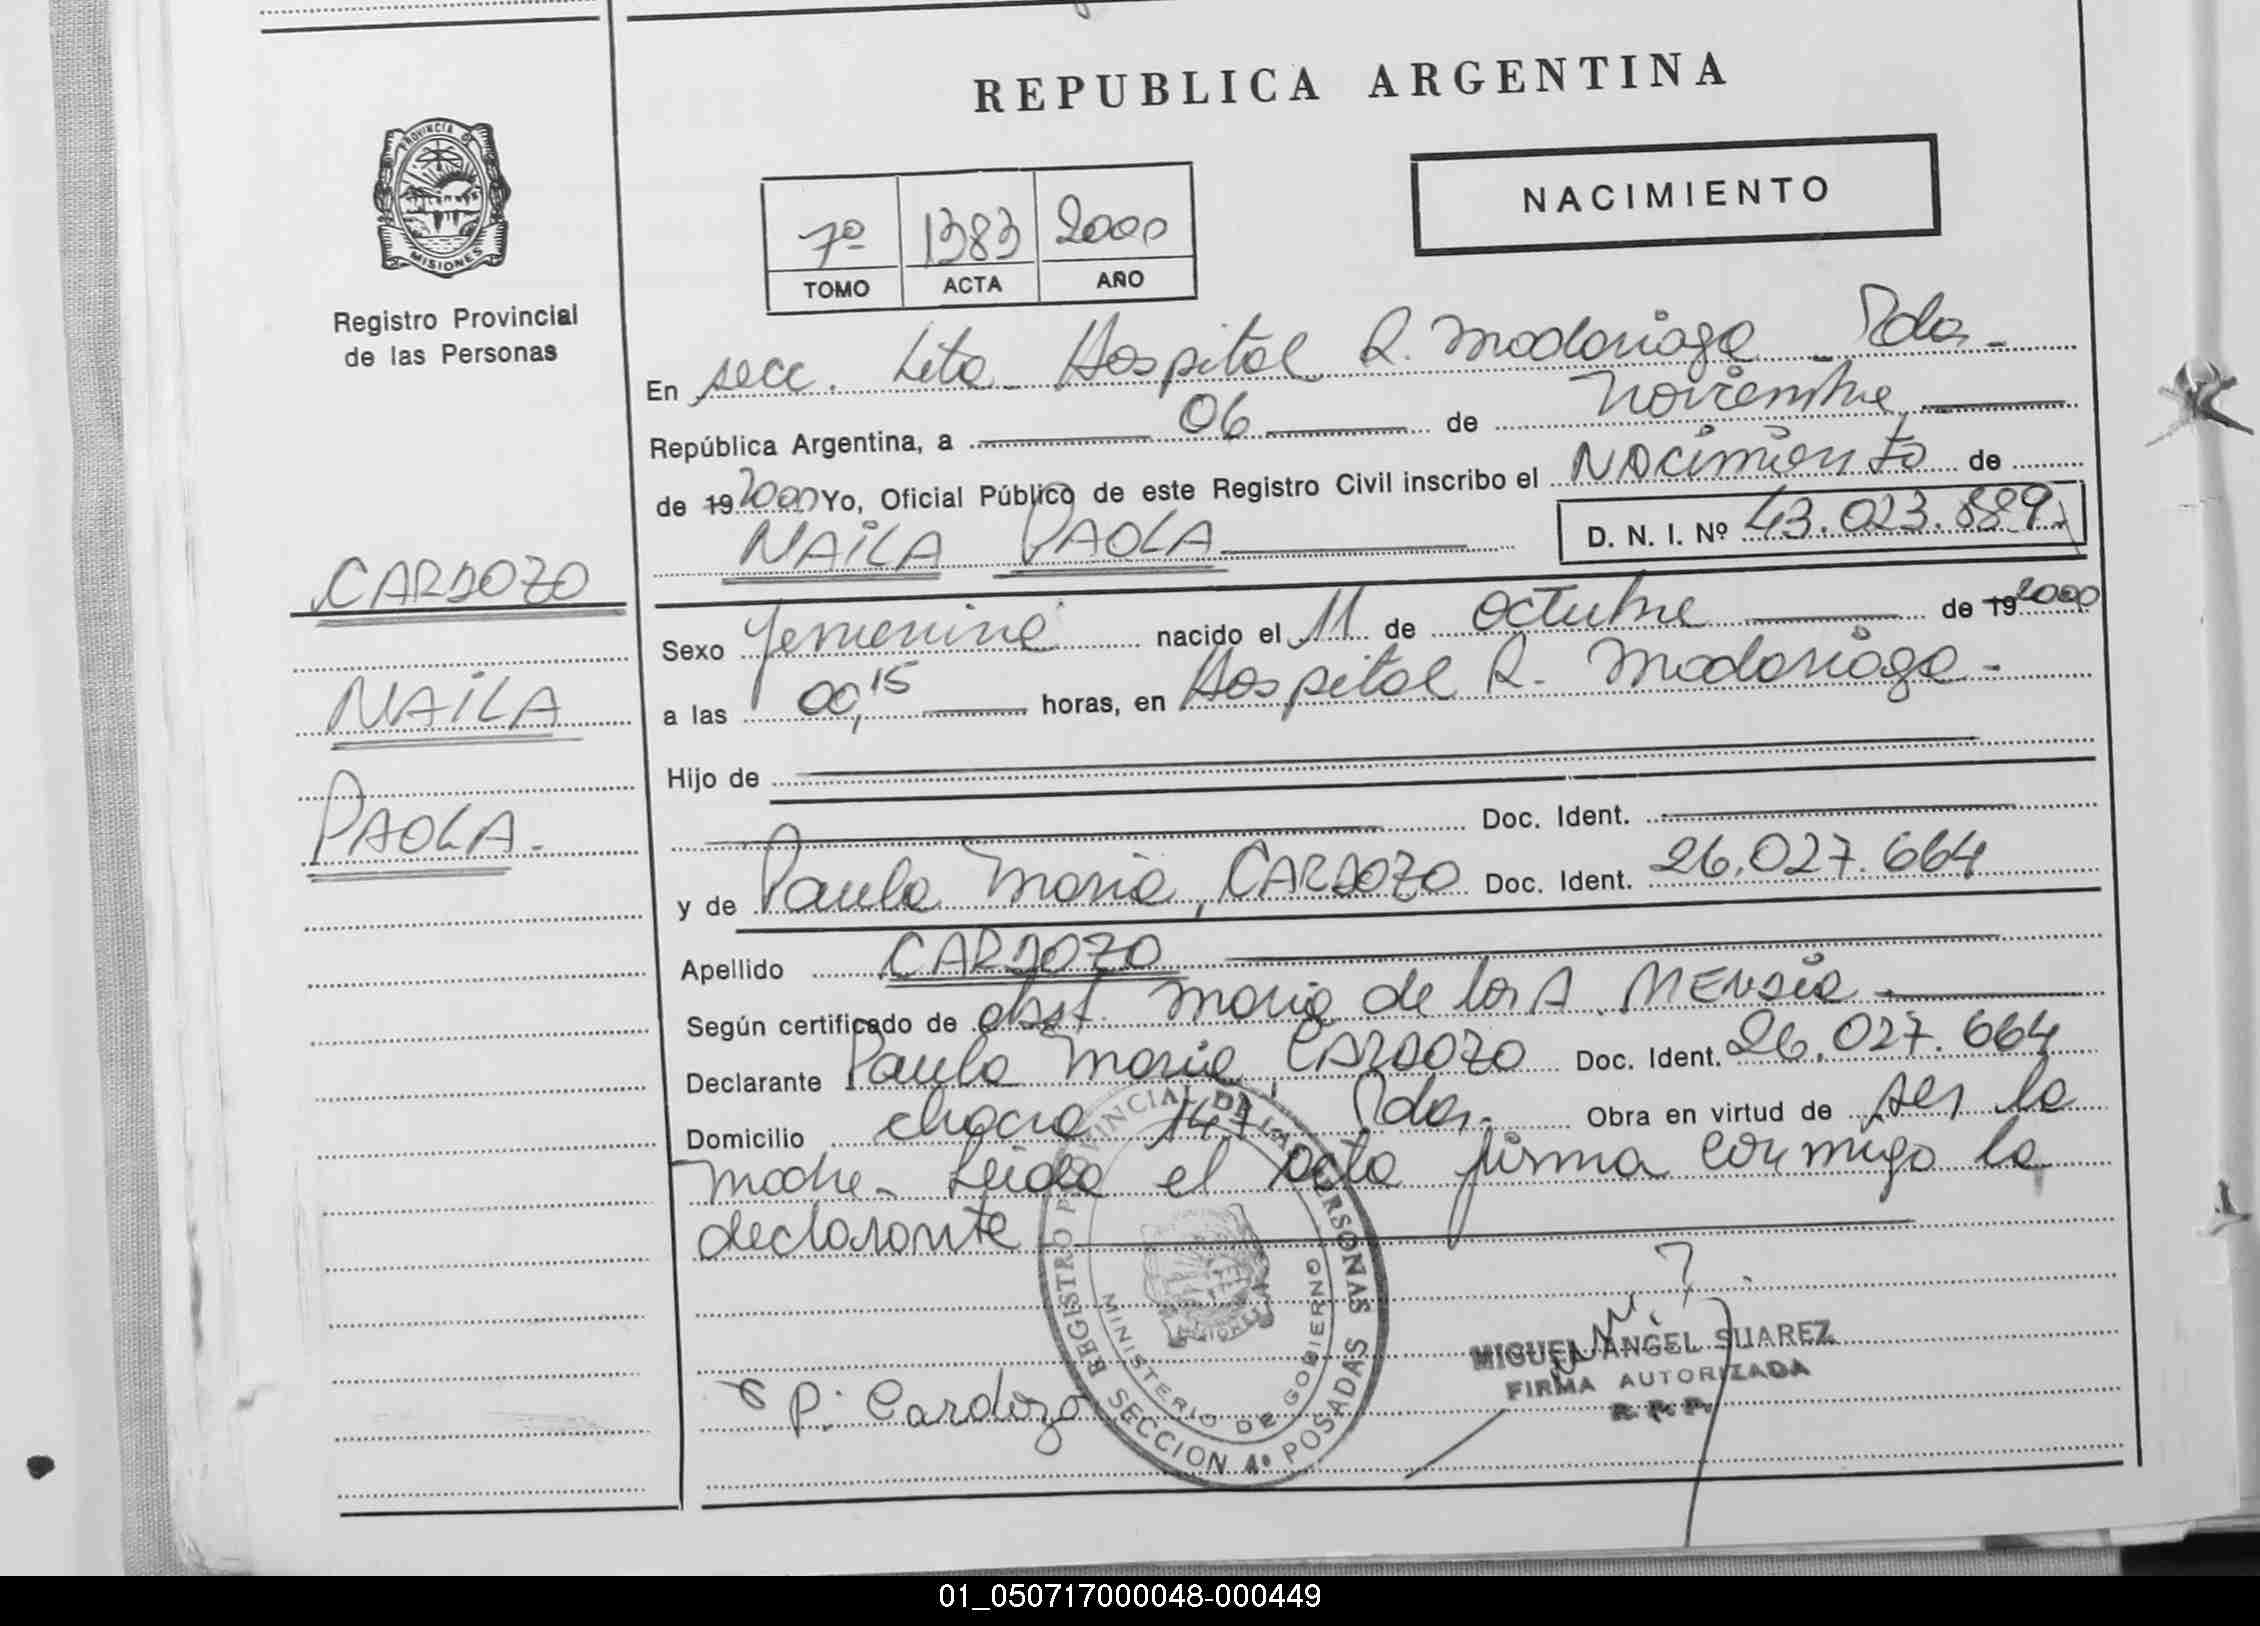 REPUBLICA ARGENTINA
PROVINCIA DE
MISIONES
Registro Provincial
de las Personas
NACIMIENTO
7º 1383 2000
TOMO ACTA AÑO
En secc. 4ta. Hospital R. Madariaga - Pdas.-
República Argentina, a 06 de noviembre
de 19 2000 Yo, Oficial Público de este Registro Civil inscribo el NACimiento de
NAiLA PAOLA D. N. I. Nº 43.023.889.
CARDOZO
NAiLA
PAOLA.-
Sexo femenino nacido el 11 de octubre de 19 2000
a las 00,15 horas, en Hospital R. Madariaga -
Hijo de
Doc. Ident.
y de Paula Maria, CARDOZO Doc. Ident. 26.027.664
Apellido CARDOZO
Según certificado de obst. Maria de los A. MENdia
Declarante Paula Maria CARDOZO Doc. Ident. 26.027.664
Domicilio chacra 147, Pdas.- Obra en virtud de ser la
madre.- Leida el acta firma conmigo la
declarante
REGISTRO PROVINCIAL DE LAS PERSONAS
MINISTERIO DE GOBIERNO
MISIONES
SECCION 4º POSADAS
P. Cardozo
MIGUEL ANGEL SUAREZ
FIRMA AUTORIZADA
R. P. P.
01_050717000048-000449